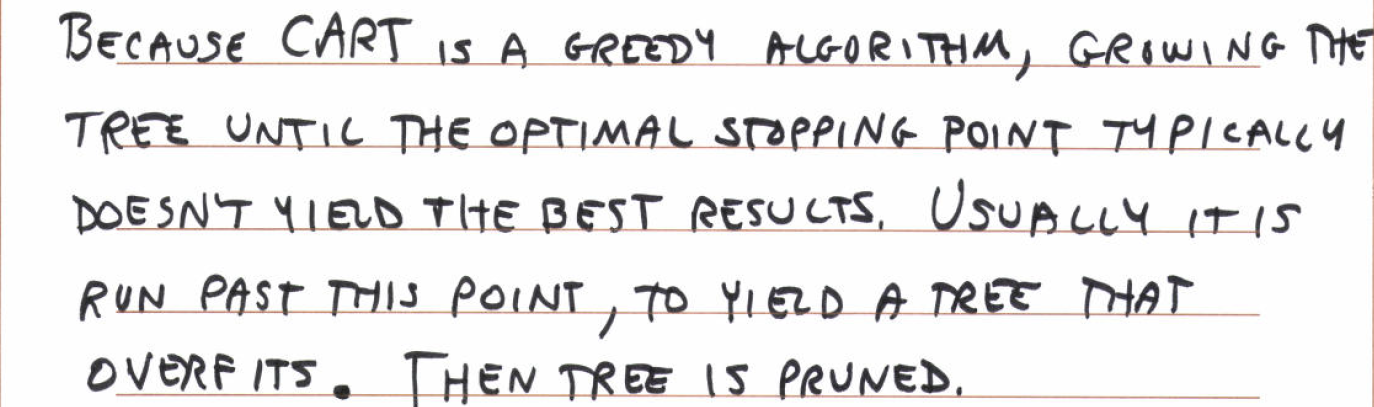 BECAUSE CART IS A GREEDY ALGORITHM, GROWING THE
TREE UNTIL THE OPTIMAL STOPPING POINT TYPICALLY
DOESN'T YIELD THE BEST RESULTS. USUALLY IT IS
RUN PAST THIS POINT, TO YIELD A TREE THAT
OVERFITS. THEN TREE IS PRUNED.